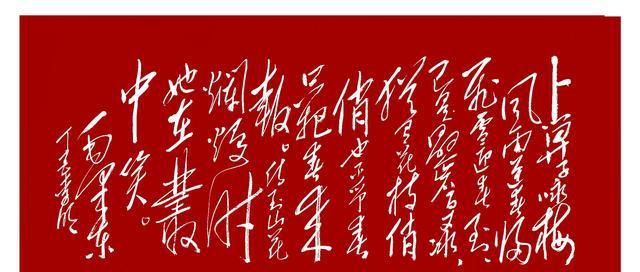 卜算子咏梅
风雨送春归
飞雪迎春到
已是悬崖百丈冰
犹有花枝俏
俏也不争春
只把春来
报。待到山花
爛漫时
她在叢
中笑。
毛泽东